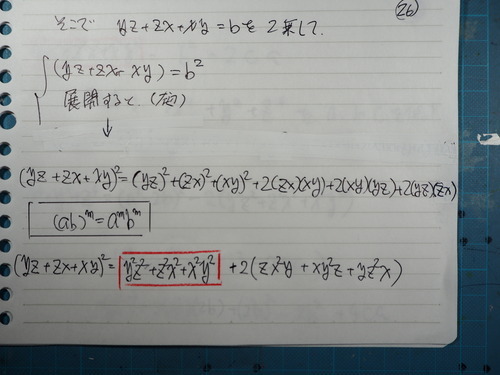 (26)
そこで yz+zx+xy=bを2乗して.
(yz+zx+xy)=b²
展開すると.(右辺)
↓
(yz+zx+xy)²=(yz)²+(zx)²+(xy)²+2(zx)(xy)+2(xy)(yz)+2(yz)(zx)
(ab)ᵐ=aᵐbᵐ
(yz+zx+xy)²=y²z²+z²x²+x²y²+2(zx²y+xy²z+yz²x)